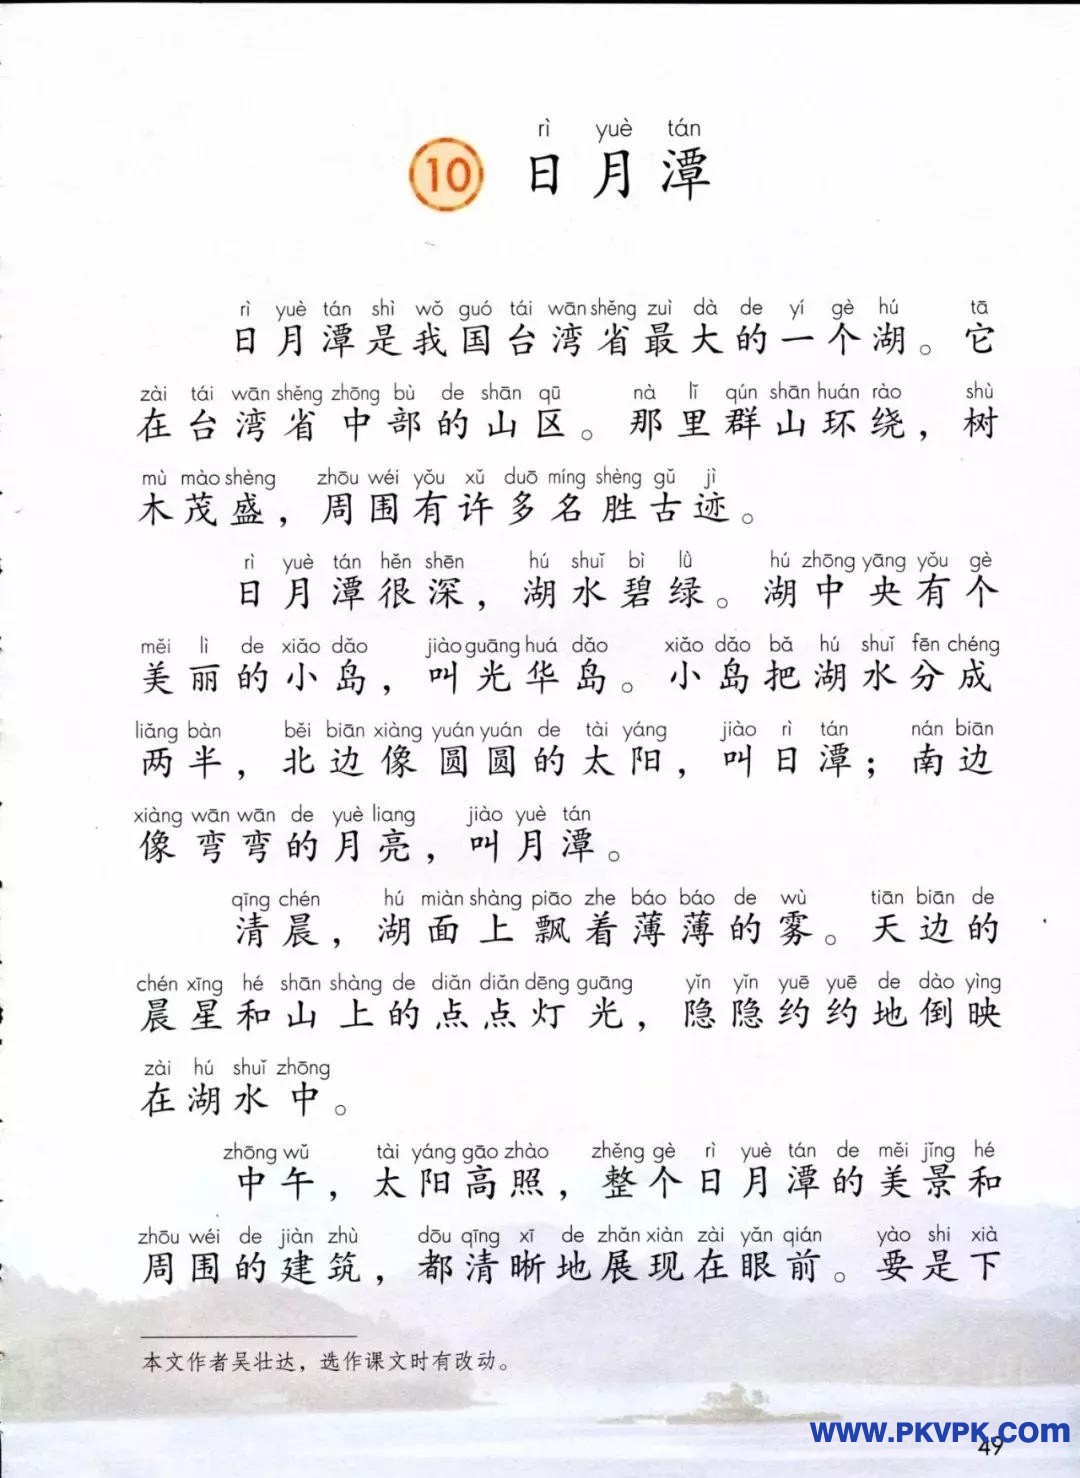 rì yuè tán
10 日月潭
rì yuè tán shì wǒ guó tái wān shěng zuì dà de yí gè hú tā
日月潭是我国台湾省最大的一个湖。它
zài tái wān shěng zhōng bù de shān qū nà lǐ qún shān huán rào shù
在台湾省中部的山区。那里群山环绕，树
mù mào shèng zhōu wéi yǒu xǔ duō míng shèng gǔ jì
木茂盛，周围有许多名胜古迹。
rì yuè tán hěn shēn hú shuǐ bì lǜ hú zhōng yāng yǒu gè
日月潭很深，湖水碧绿。湖中央有个
měi lì de xiǎo dǎo jiào guāng huá dǎo xiǎo dǎo bǎ hú shuǐ fēn chéng
美丽的小岛，叫光华岛。小岛把湖水分成
liǎng bàn běi biān xiàng yuán yuán de tài yáng jiào rì tán nán biān
两半，北边像圆圆的太阳，叫日潭；南边
xiàng wān wān de yuè liang jiào yuè tán
像弯弯的月亮，叫月潭。
qīng chén hú miàn shàng piāo zhe báo báo de wù tiān biān de
清晨，湖面上飘着薄薄的雾。天边的
chén xīng hé shān shàng de diǎn diǎn dēng guāng yǐn yǐn yuē yuē de dào yìng
晨星和山上的点点灯光，隐隐约约地倒映
zài hú shuǐ zhōng
在湖水中。
zhōng wǔ tài yáng gāo zhào zhěng gè rì yuè tán de měi jǐng hé
中午，太阳高照，整个日月潭的美景和
zhōu wéi de jiàn zhù dōu qīng xī de zhǎn xiàn zài yǎn qián yào shi xià
周围的建筑，都清晰地展现在眼前。要是下
本文作者吴壮达，选作课文时有改动。
www.PKVPK.com
49